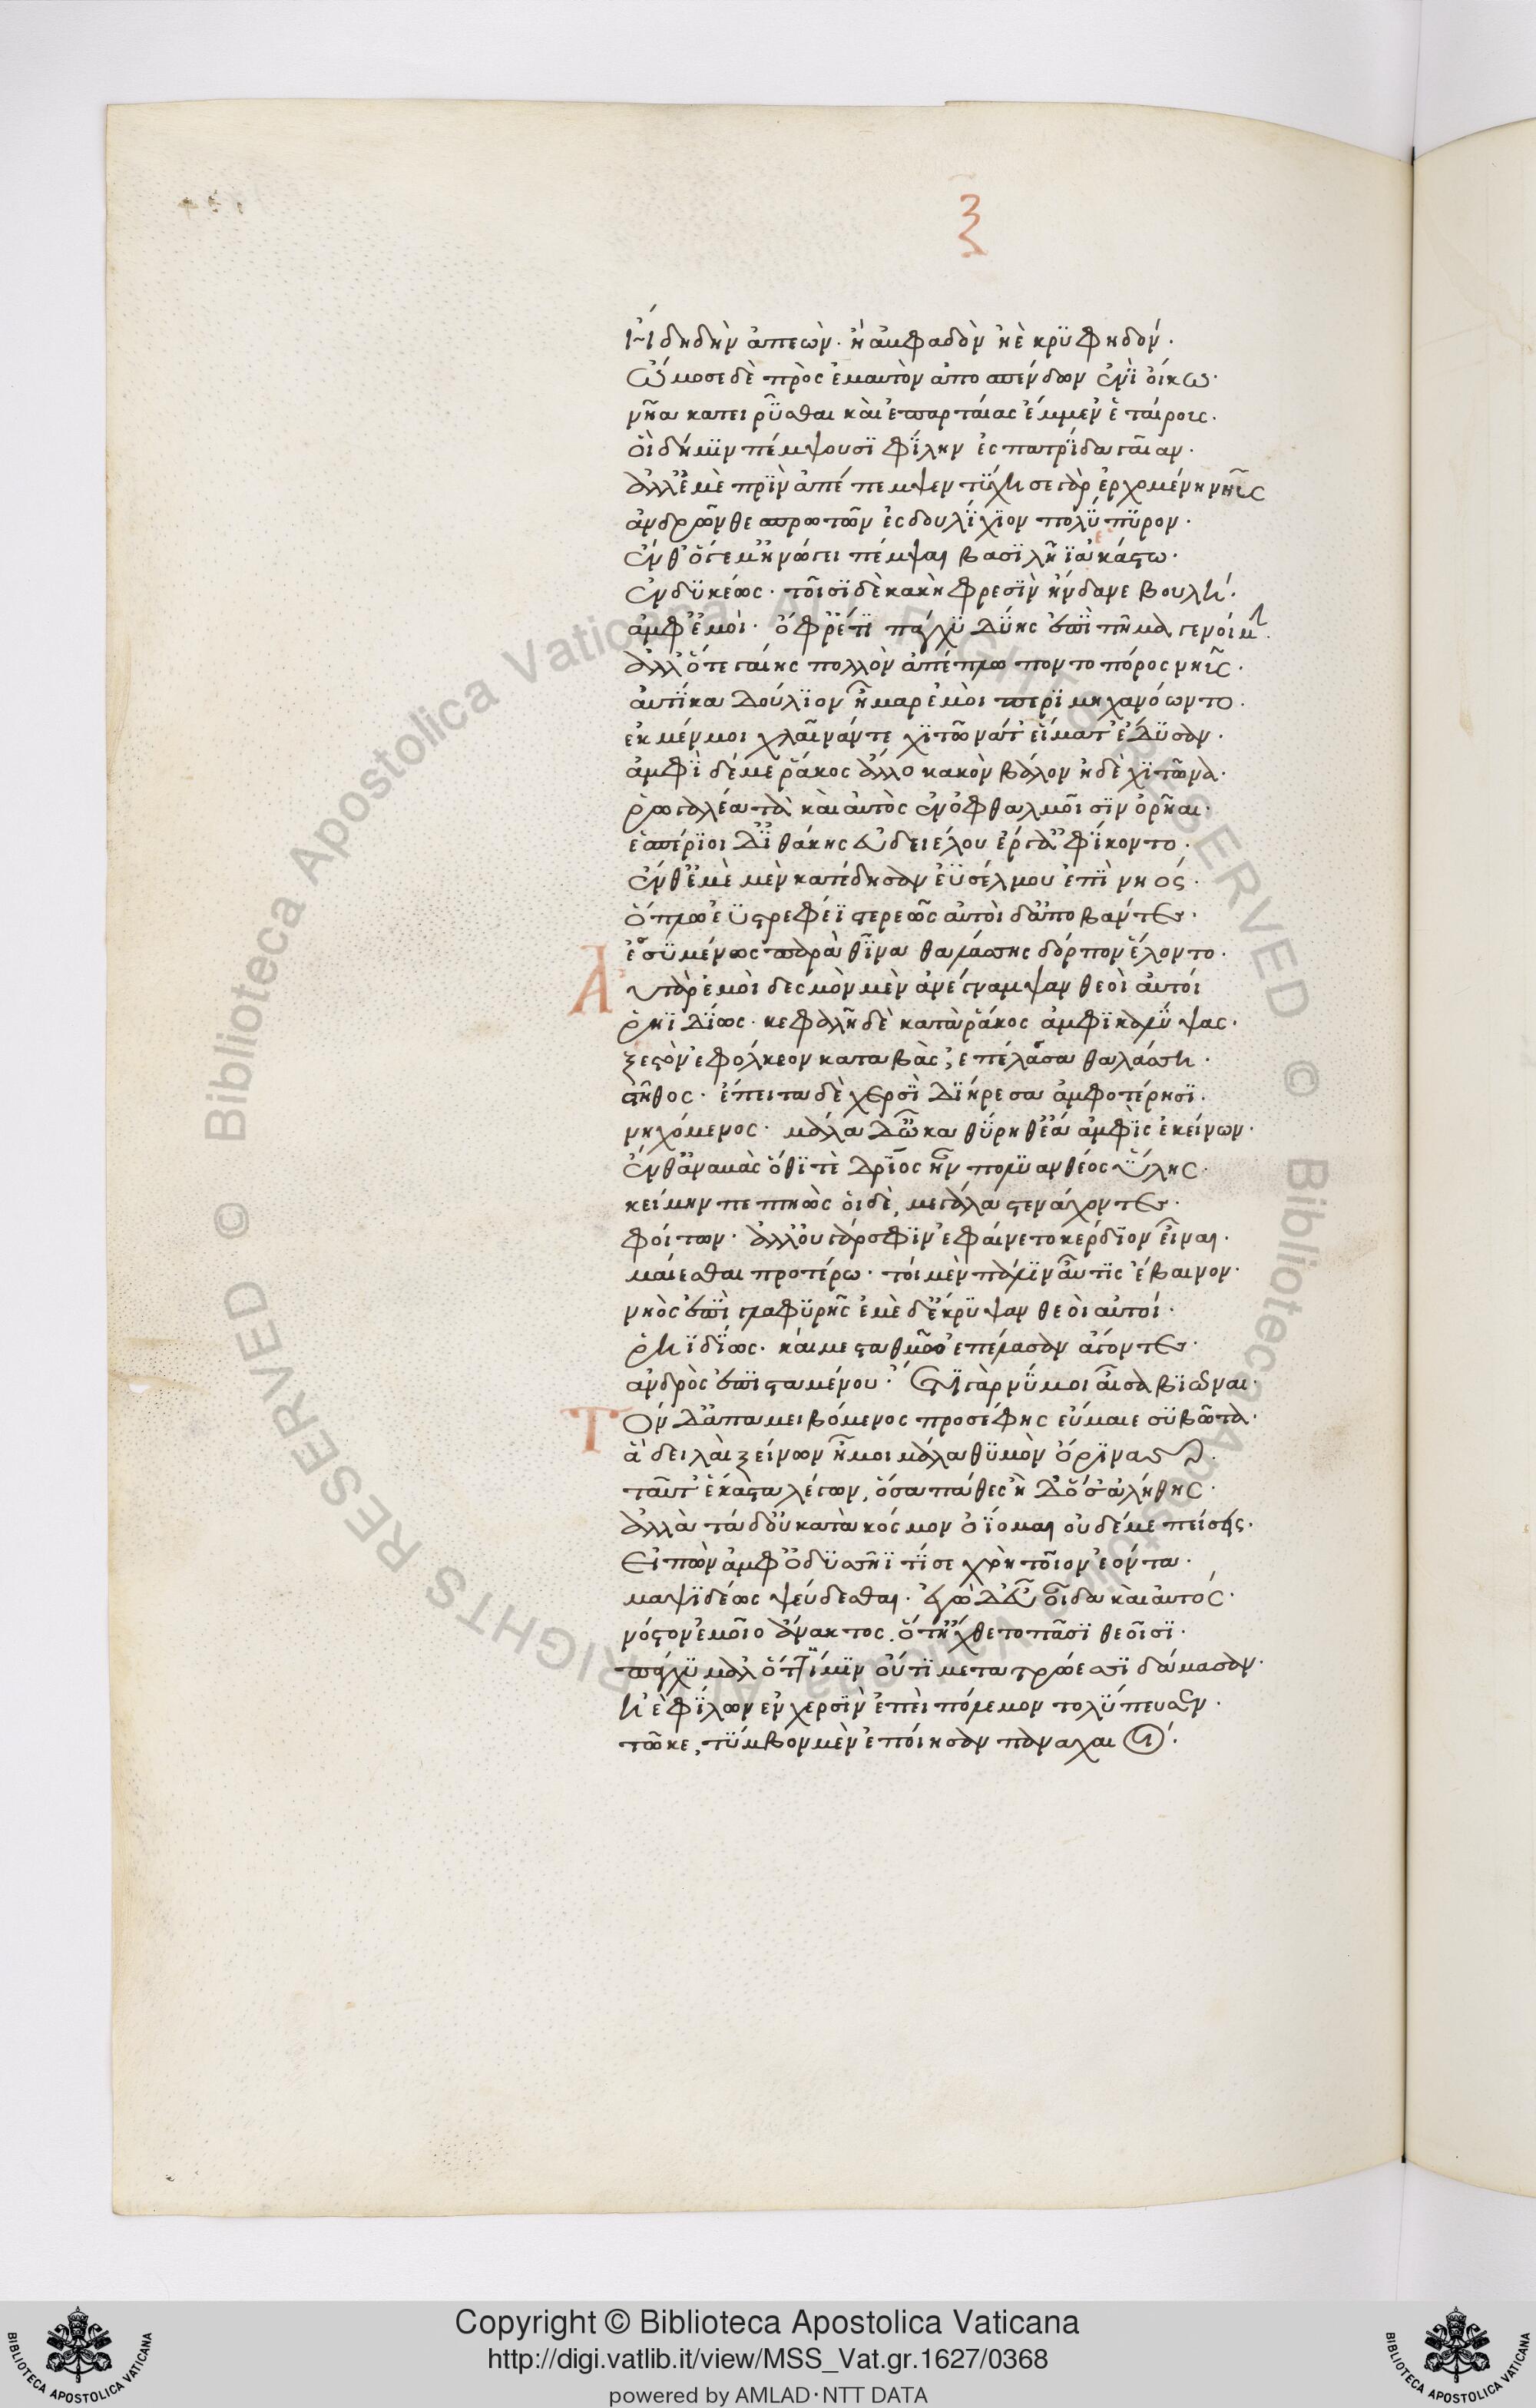 ξ
Ἤδη δὴν ἀπεὼν· ἢ ἀμφαδὸν ἠὲ κρϋφηδόν·
Ὤμοσε δὲ πρὸς ἐμαυτὸν ἀποσπένδων ἐνῒ οἴκω·
νῆα κατειρῦσθαι καὶ ἐπαρτέας ἔμμεν ἑταίροις·
οἳ δή μϊν πέμψουσϊ φίλην ἐς πατρίδα γαῖαν·
ἀλλ' ἐμὲ πρὶν ἀπέπεμψεν τύχησε γὰρ ἐρχομένη νηῦς
ἀνδρῶν θεσπρωτῶν ἐς δουλίχϊον πολύπϋρον·
ἔνθ' ὅγε μ' ἠνώγει πέμψαι βασϊλῆϊ ἀκάστω·
ἐνδϋκέως· τοῖσϊ δὲ κακὴ φρεσὶν ἥνδανε βουλή·
ἀμφ' ἐμοὶ· ὄφρ' ἔτι πάγχϋ δύης ἐπὶ πῆμα γενοίμην·
ἀλλ' ὅτε γαίης πολλὸν ἀπέπλω ποντοπόρος νηῦς·
αὐτίκα δούλϊον ἦμαρ ἐμοὶ περϊμηχανόωντο·
ἐκ μέν μοι χλαῖνάν τε χϊτῶνάτ' εἵματ' ἔδϋσαν·
ἀμφὶ δέ με ῥάκος ἄλλο κακὸν βάλον ἠδὲ χϊτῶνα·
ῥωγαλέα τὰ καὶ αὐτὸς ἐν ὀφθαλμοῖσϊν ὁρῆαι·
ἑσπέρϊοι δ' ἰθάκης εὐδειέλου ἔργ' ἀφίκοντο·
ἔνθ' ἐμὲ μὲν κατέδησαν ἐϋσέλμου ἐπὶ νηός·
ὅπλω ἐϋστρεφέϊ στερεῶς αὐτοὶ δ' ἀποβάντες·
ἐσσϋμένως παρὰ θῖνα θαλάσσης δόρπον ἕλοντο·
Αὐτὰρ ἐμοὶ δεσμὸν μὲν ἀνέγναμψαν θεοὶ αὐτοί
ῥηϊδίως· κεφαλῆ δὲ κατὰ ῥάκος ἀμφϊκαλύψας·
ξεστὸν ἐφόλκεον καταβὰς, ἐπέλασσα θαλάσση·
στῆθος· ἔπειτα δὲ χερσὶ διήρεσα ἀμφοτέρησϊ·
νηχόμενος· μάλα δ' ὦκα θύρηθ' ἔα ἀμφὶς ἐκείνων·
ἔνθ' ἀναμὰς ὅθϊ τὲ δρῖος ἦν πολϋανθέος ὕλης·
κείμην πεπτηὼς οἱ δὲ, μεγάλα στενάχοντες·
φοίτων· ἀλλ' οὐ γάρ σφϊν ἐφαίνετο κέρδϊον εἶναι·
μαίεσθαι προτέρω· τοὶ μὲν πάλϊν αὖτϊς ἔβαινον·
νηὸς ἐπὶ γλαφϋρῆς ἐμὲ δ' ἔκρϋψαν θεοὶ αὐτοί·
ῥηϊδίως· καί με σταθμῶ ἐπέλασαν ἄγοντες·
ἀνδρὸς ἐπισταμένου· ἔτϊ γάρ νύ μοι αἶσα βϊῶναι·
Τὸν δ' ἀπαμειβόμενος προσέφης εὔμαιε σϋβῶτα·
ἆ δειλὲ ξείνων ἦ μοι μάλα θϋμὸν ὄρϊνας·
ταῦτ' ἕκαστα λέγων, ὅσα πάθες ἠδ' ὅσ' ἀλήθης·
ἀλλὰ τάδ' οὐ κατὰ κόσμον ὀΐομαι οὐδέ με πείσεις·
Εἰπὼν ἀμφ' ὀδϋσῆϊ τί σε χρὴ τοῖον ἐόντα·
μαψϊδέως ψεύδεσθαι· ἐγὼ δ' εὖ οἶδα καὶ αὐτός·
νόστον ἐμοῖο ἄνακτος, ὅτ' ἤχθετο πᾶσϊ θεοῖσϊ·
πάγχϋ μάλ' ὅττί μϊν οὔτϊ μετὰ τρώεσσϊ δάμασαν·
ἠὲ φίλων ἐν χερσὶν ἐπεὶ πόλεμον τολύπευσεν·
τῶ κε, τύμβον μὲν ἐποίησαν παναχαιοί·
Copyright © Biblioteca Apostolica Vaticana
http://digi.vatlib.it/view/MSS_Vat.gr.1627/0368
powered by AMLAD·NTT DATA